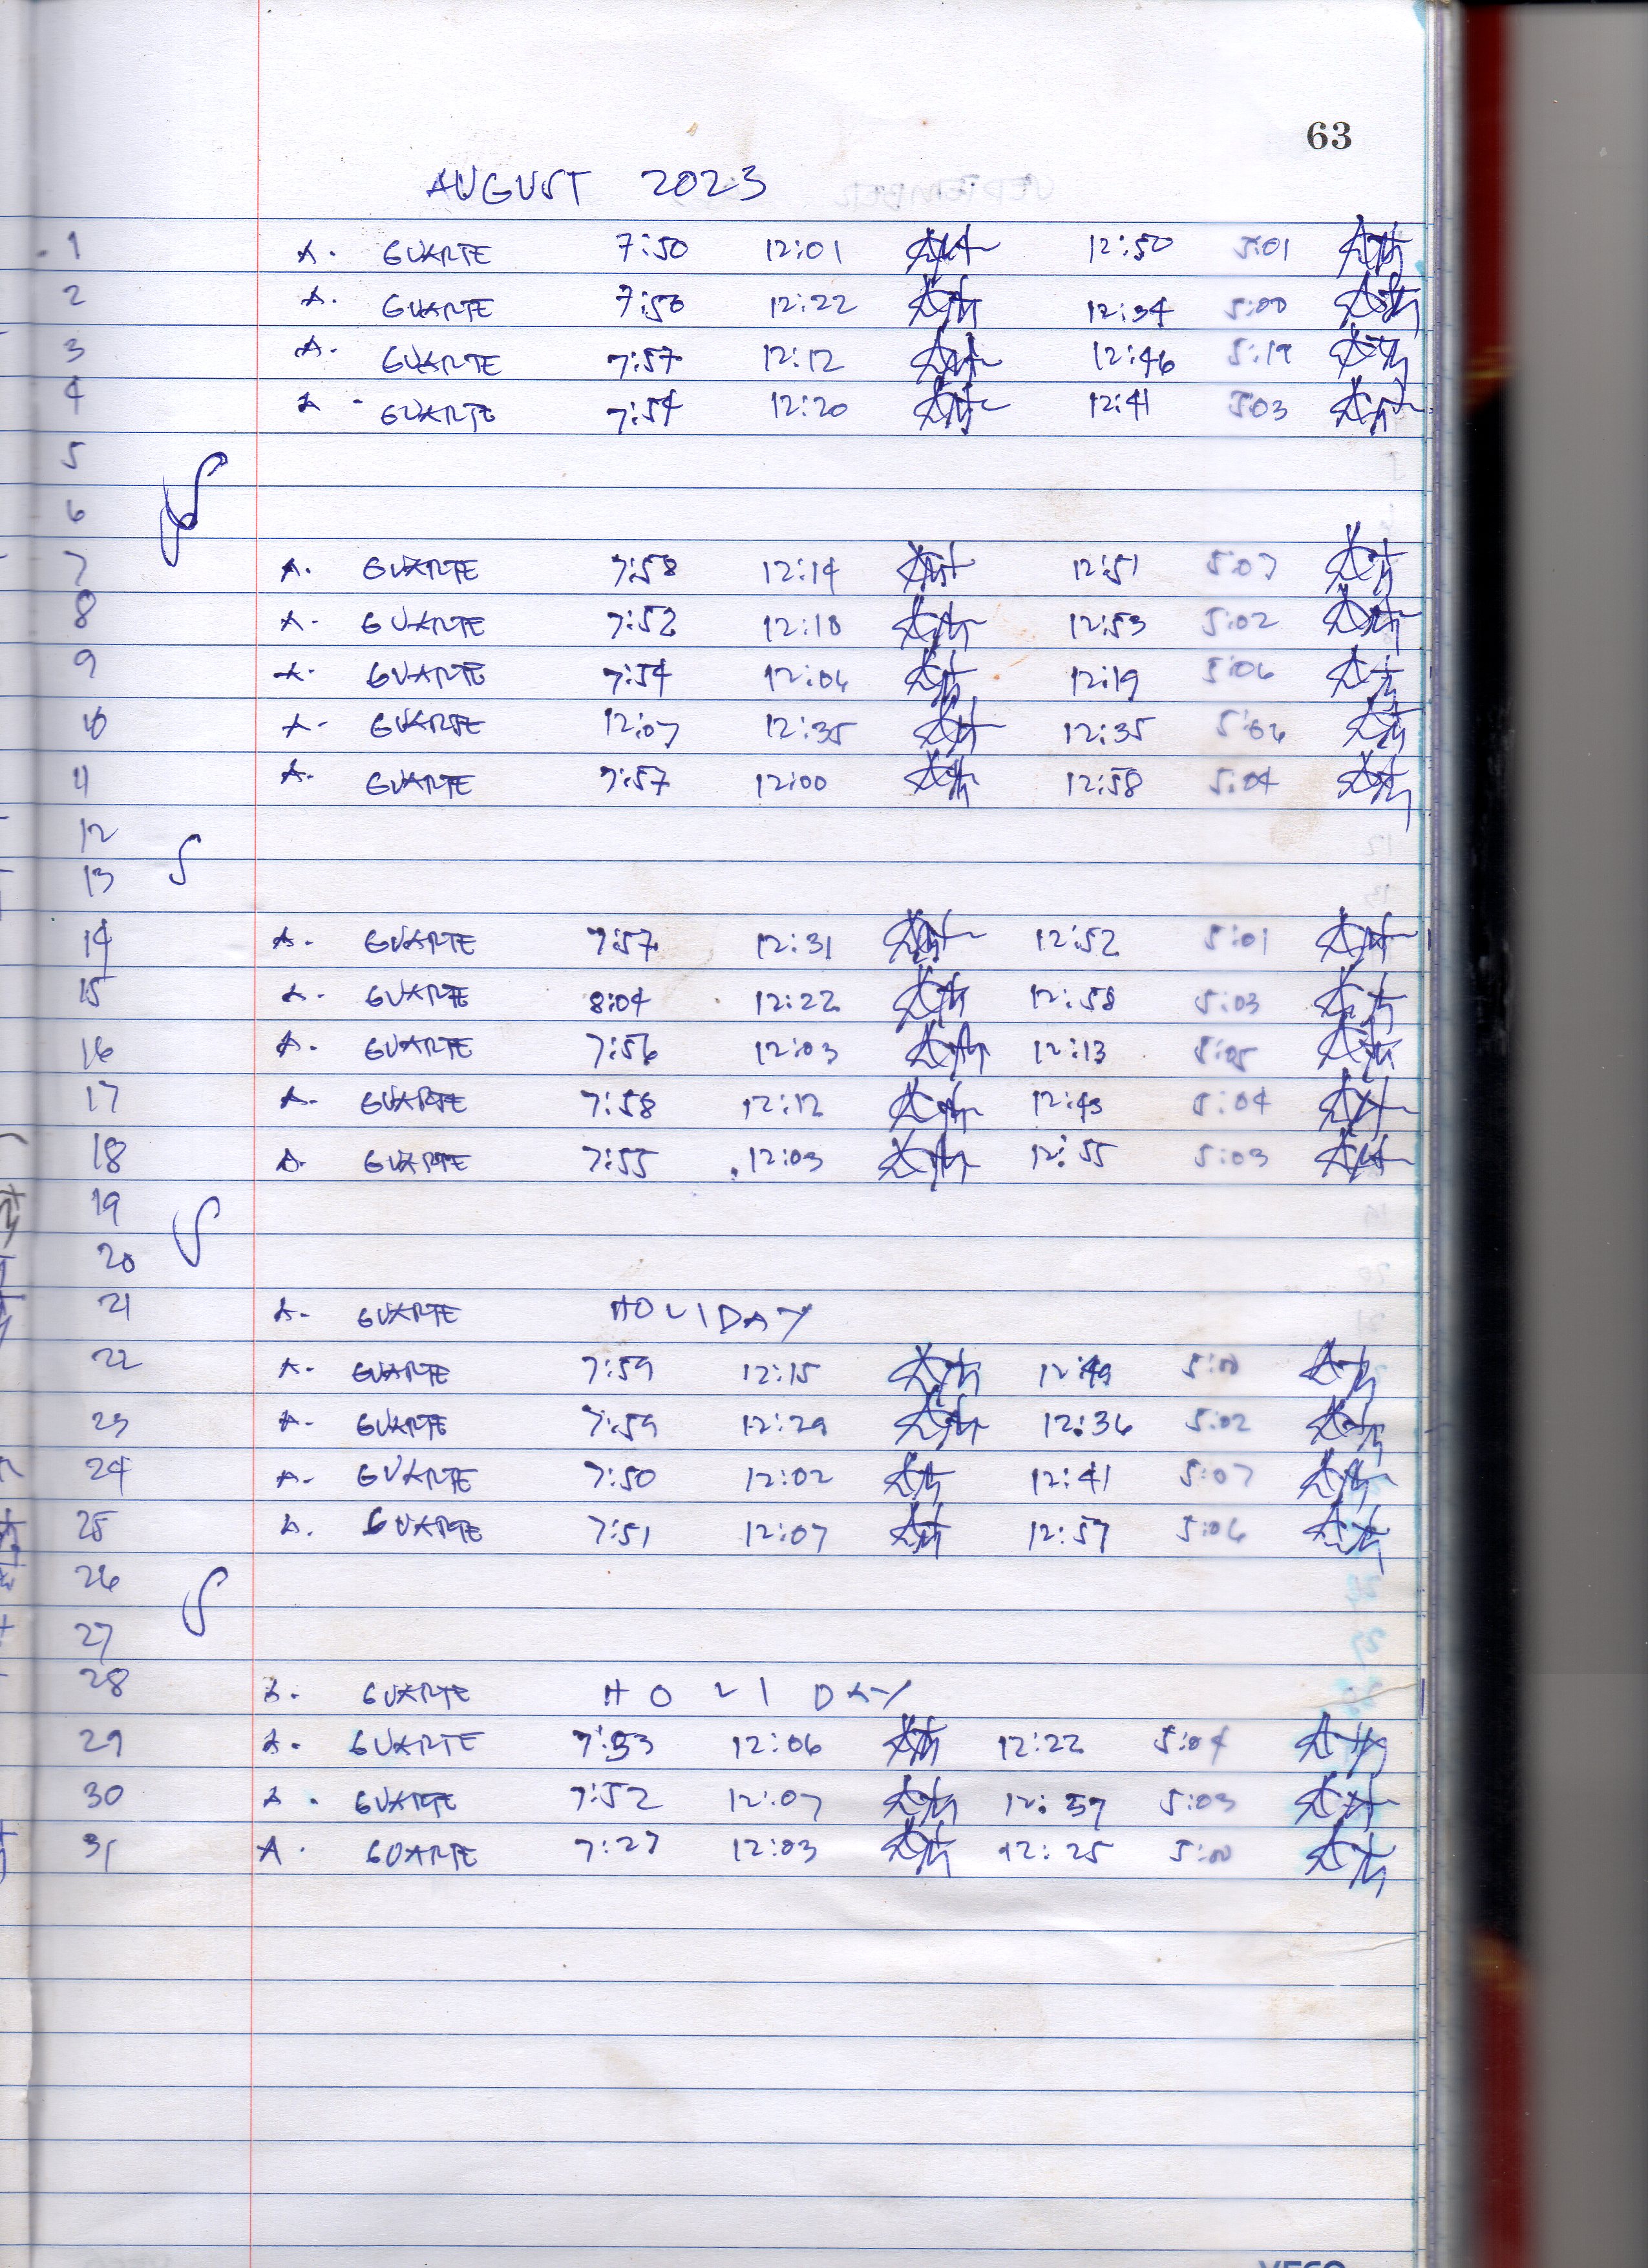 63
AUGUST 2023
1 A. GUARTE 7:50 12:01 12:50 5:01
2 A. GUARTE 7:50 12:22 12:34 5:00
3 A. GUARTE 7:57 12:12 12:46 5:19
4 A. GUARTE 7:54 12:20 12:41 5:03
5
6
7 A. GUARTE 7:58 12:14 12:51 5:07
8 A. GUARTE 7:52 12:18 12:53 5:02
9 A. GUARTE 7:54 12:06 12:19 5:06
10 A. GUARTE 12:07 12:35 12:35 5:06
11 A. GUARTE 7:57 12:00 12:58 5:04
12
13
14 A. GUARTE 7:57 12:31 12:52 5:01
15 A. GUARTE 8:04 12:22 12:58 5:03
16 A. GUARTE 7:56 12:03 12:13 5:05
17 A. GUARTE 7:58 12:12 12:43 5:04
18 A. GUARTE 7:55 12:03 12:55 5:03
19
20
21 A. GUARTE HOLIDAY
22 A. GUARTE 7:59 12:15 12:49 5:00
23 A. GUARTE 7:59 12:29 12:36 5:02
24 A. GUARTE 7:50 12:02 12:41 5:07
25 A. GUARTE 7:51 12:07 12:57 5:06
26
27
28 A. GUARTE HOLIDAY
29 A. GUARTE 7:53 12:06 12:22 5:04
30 A. GUARTE 7:52 12:07 12:57 5:03
31 A. GUARTE 7:27 12:03 12:25 5:00